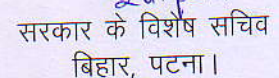 सरकार के विशेष सचिव
बिहार, पटना।